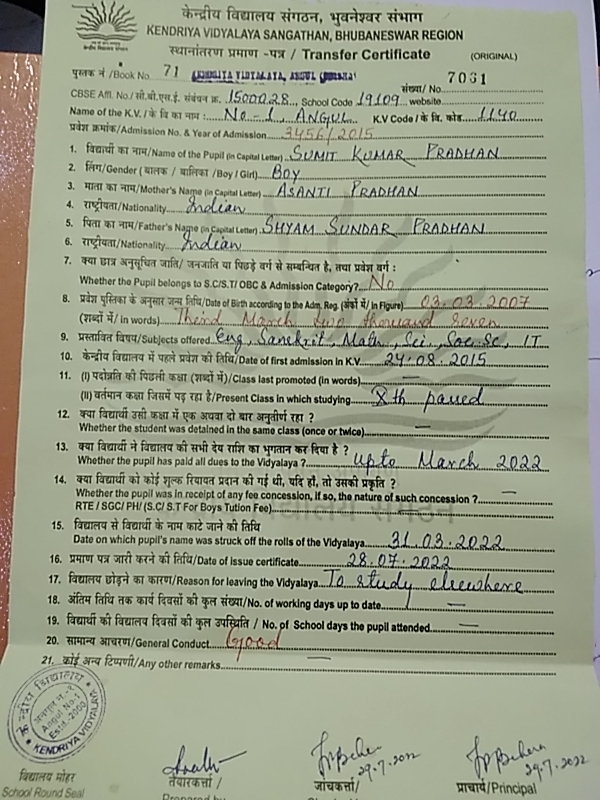 केन्द्रीय विद्यालय संगठन, भुवनेश्वर संभाग
KENDRIYA VIDYALAYA SANGATHAN, BHUBANESWAR REGION
स्थानांतरण प्रमाण -पत्र / Transfer Certificate (ORIGINAL)
पुस्तक नं /Book No. 71 KENDRIYA VIDYALAYA, ANGUL (ODISHA) संख्या/ No. 7031
CBSE Affl. No./ सी.बी.एस.ई. संबंधन क्र. 1500028 School Code 19109 website
Name of the K.V. / के वि का नाम : No - 1, ANGUL K.V Code / के वि. कोड. 1140
प्रवेश क्रमांक/Admission No. & Year of Admission 3456/2015
1. विद्यार्थी का नाम/Name of the Pupil (in Capital Letter) SUMIT KUMAR PRADHAN
2. लिंग/Gender ( बालक / बालिका /Boy / Girl) Boy
3. माता का नाम/Mother's Name (in Capital Letter) ASANTI PRADHAN
4. राष्ट्रीयता/Nationality Indian
5. पिता का नाम/Father's Name (in Capital Letter) SHYAM SUNDAR PRADHAN
6. राष्ट्रीयता/Nationality Indian
7. क्या छात्र अनुसूचित जाति/ जनजाति या पिछड़े वर्ग से सम्बन्धित है, तथा प्रवेश वर्ग :
Whether the Pupil belongs to S.C/S.T/ OBC & Admission Category? No
8. प्रवेश पुस्तिका के अनुसार जन्म तिथि/Date of Birth according to the Adm. Reg. (अंकों में/ in Figure) 03.03.2007
(शब्दों में/ in words) Third March two thousand seven
9. प्रस्तावित विषय/Subjects offered Eng, Sanskrit, Math, Sci, Soc. Sc, IT
10. केन्द्रीय विद्यालय में पहले प्रवेश की तिथि/Date of first admission in K.V. 24.08.2015
11. (I) पदोन्नति की पिछली कक्षा (शब्दों में)/Class last promoted (in words) —
(II) वर्तमान कक्षा जिसमें पढ़ रहा है/Present Class in which studying Xth passed
12. क्या विद्यार्थी उसी कक्षा में एक अथवा दो बार अनुत्तीर्ण रहा ?
Whether the student was detained in the same class (once or twice) —
13. क्या विद्यार्थी ने विद्यालय की सभी देय राशि का भुगतान कर दिया है ?
Whether the pupil has paid all dues to the Vidyalaya ? upto March 2022
14. क्या विद्यार्थी को कोई शुल्क रियायत प्रदान की गई थी, यदि हाँ, तो उसकी प्रकृति ?
Whether the pupil was in receipt of any fee concession, if so, the nature of such concession ? —
RTE / SGC/ PH/ (S.C/ S.T For Boys Tution Fee)
15. विद्यालय से विद्यार्थी के नाम काटे जाने की तिथि
Date on which pupil's name was struck off the rolls of the Vidyalaya 31.03.2022
16. प्रमाण पत्र जारी करने की तिथि/Date of issue certificate 28.07.2022
17. विद्यालय छोड़ने का कारण/Reason for leaving the Vidyalaya To study elsewhere
18. अंतिम तिथि तक कार्य दिवसों की कुल संख्या/No. of working days up to date —
19. विद्यार्थी की विद्यालय दिवसों की कुल उपस्थिति / No. of School days the pupil attended —
20. सामान्य आचरण/General Conduct Good
21. कोई अन्य टिप्पणी/Any other remarks —
केन्द्रीय विद्यालय
Angul No-1
Estd-2000
KENDRIYA VIDYALAYA
29.7.2022 29.7.2022
विद्यालय मोहर तैयारकर्त्ता / जांचकर्त्ता/ प्राचार्य/Principal
School Round Seal Prepared by